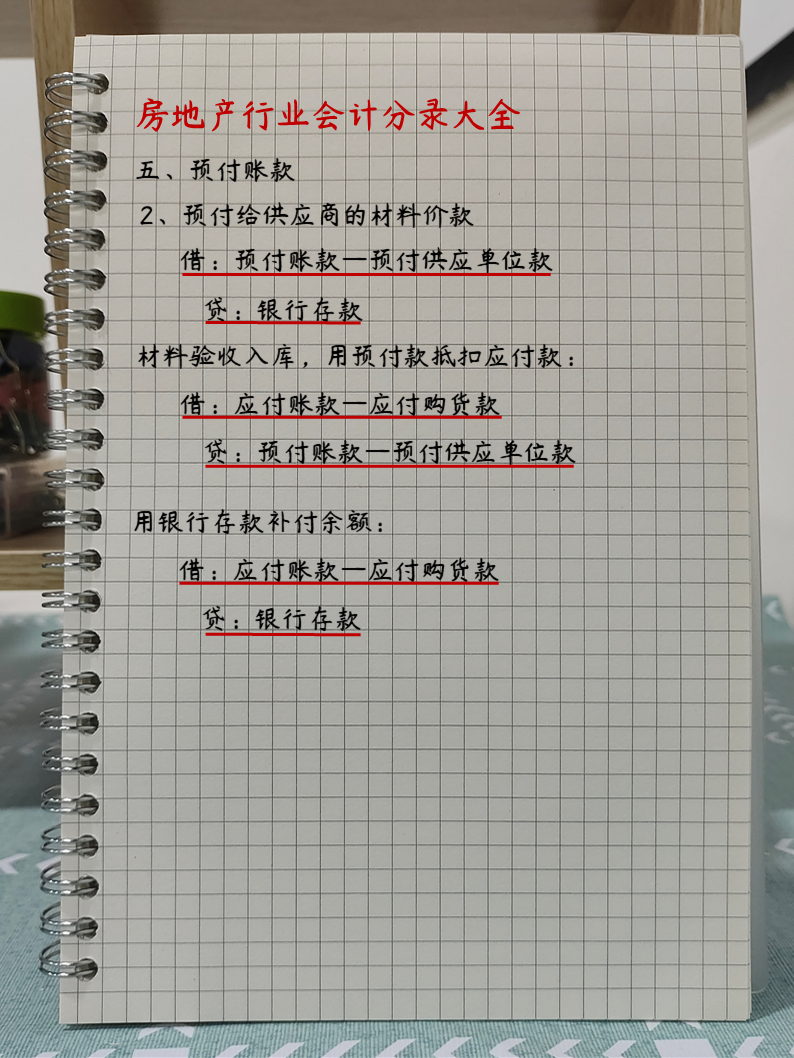 房地产行业会计分录大全
五、预付账款
2、预付给供应商的材料价款
借：预付账款—预付供应单位款
贷：银行存款
材料验收入库，用预付款抵扣应付款：
借：应付账款—应付购货款
贷：预付账款—预付供应单位款
用银行存款补付余额：
借：应付账款—应付购货款
贷：银行存款